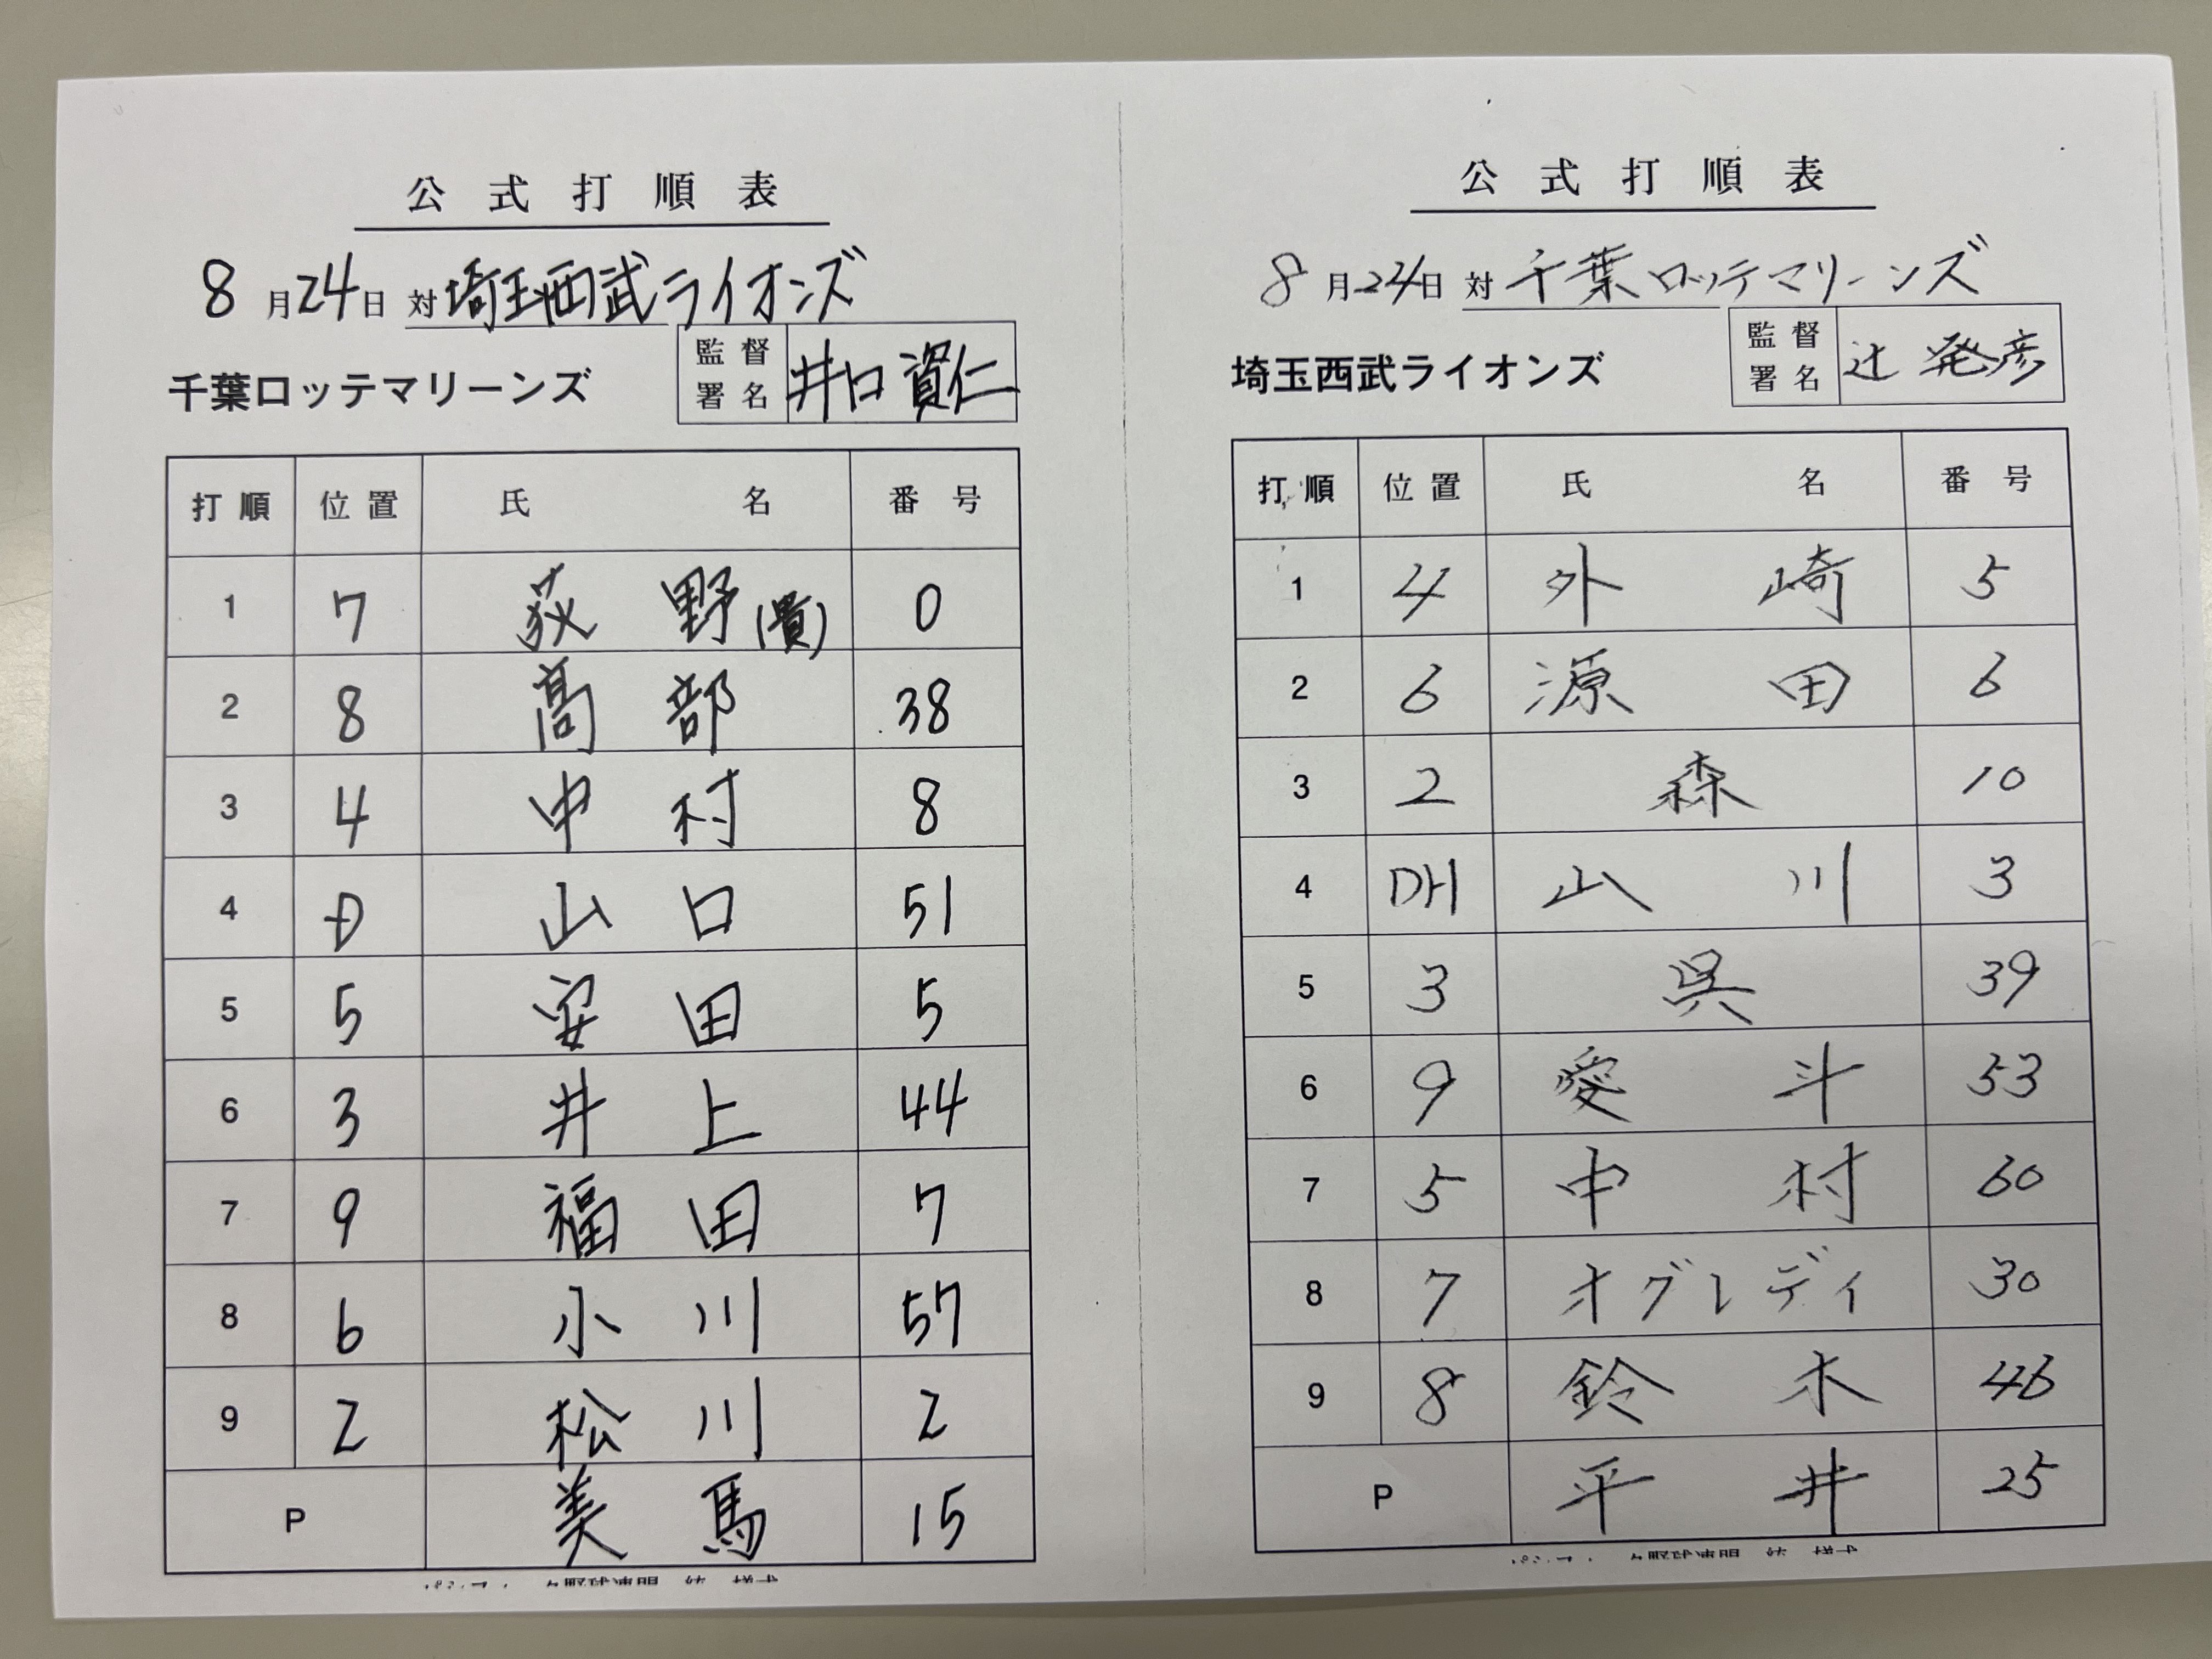 公式打順表
8月24日 対 埼玉西武ライオンズ
千葉ロッテマリーンズ 監督署名 井口資仁
打順 位置 氏名 番号
1 7 荻野(貴) 0
2 8 髙部 38
3 4 中村 8
4 D 山口 51
5 5 安田 5
6 3 井上 44
7 9 福田 7
8 6 小川 57
9 2 松川 2
P 美馬 15
公式打順表
8月24日 対 千葉ロッテマリーンズ
埼玉西武ライオンズ 監督署名 辻発彦
打順 位置 氏名 番号
1 4 外崎 5
2 6 源田 6
3 2 森 10
4 DH 山川 3
5 3 呉 39
6 9 愛斗 53
7 5 中村 60
8 7 オグレディ 30
9 8 鈴木 46
P 平井 25